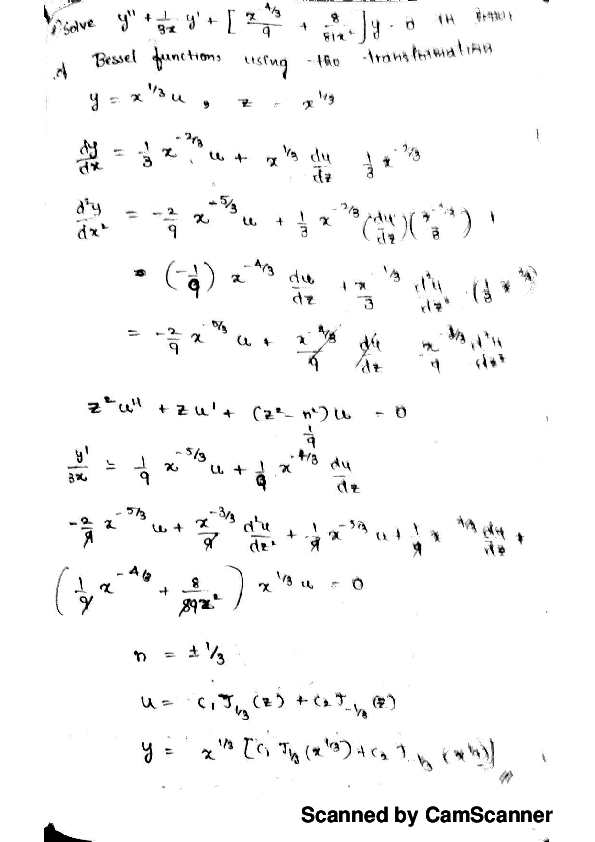 Solve y'' + 1/3x y' + [ x^-4/3/9 + 8/81x² ] y = 0 in
of Bessel functions using the transformation
y = x^1/3 u , z = x^1/3
dy/dx = 1/3 x^-2/3 u + x^1/3 du/dz 1/3 x^-2/3
d²y/dx² = -2/9 x^-5/3 u + 1/3 x^-2/3 (du/dz)
(-1/9) x^-4/3 du/dz + x^1/3/3 d²u/dz²
= -2/9 x^-5/3 u + du/dz d²u/dz²
z² u'' + z u' + (z² - n²) u = 0
1/9
y'/3x = 1/9 x^-5/3 u + 1/9 x^-4/3 du/dz
-2/9 x^-5/3 u + x^-3/3/9 d²u/dz² + 1/9 x^-5/3 u + 1/9 x du/dz +
( 1/9 x^-4/3 + 8/89x² ) x^1/3 u = 0
n = ± 1/3
u = C₁ J_1/3 (z) + C₂ J_-1/3 (z)
y = x^1/3 [C₁ J_1/3 (x^1/3) + C₂ J_-1/3 (x^1/3)]
Scanned by CamScanner